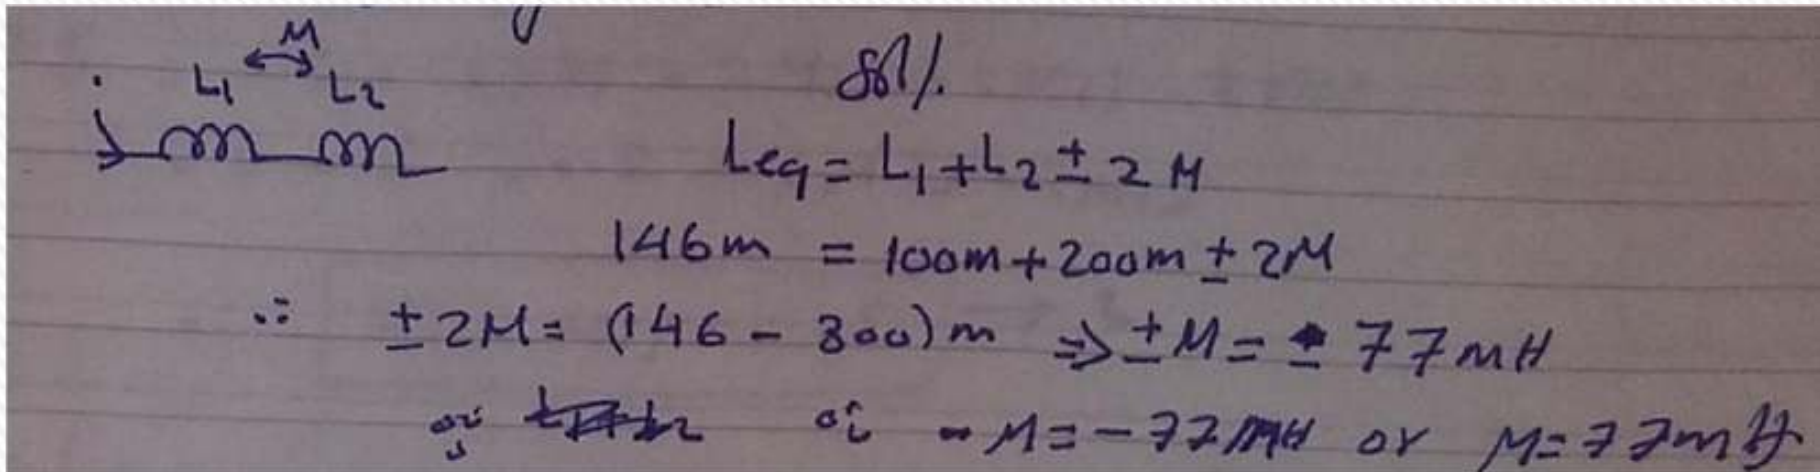 M
i L1 L2
sol/.
Leq = L1 + L2 ± 2M
146m = 100m + 200m ± 2M
∴ ± 2M = (146 - 300)m ⇒ ± M = - 77mH
- M = - 77mH or M = 77mH